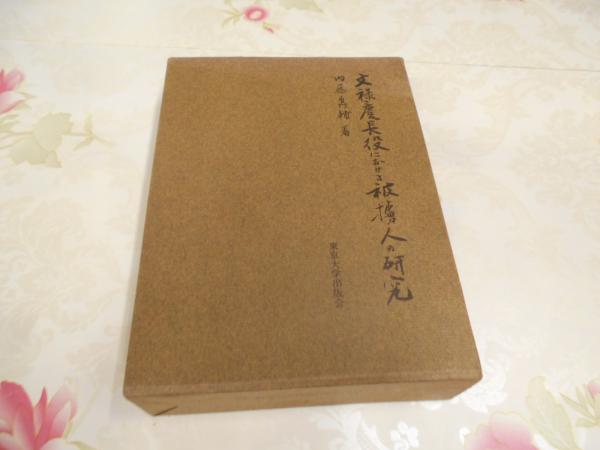 文禄慶長役における被擄人の研究
内藤雋輔 著
東京大学出版会